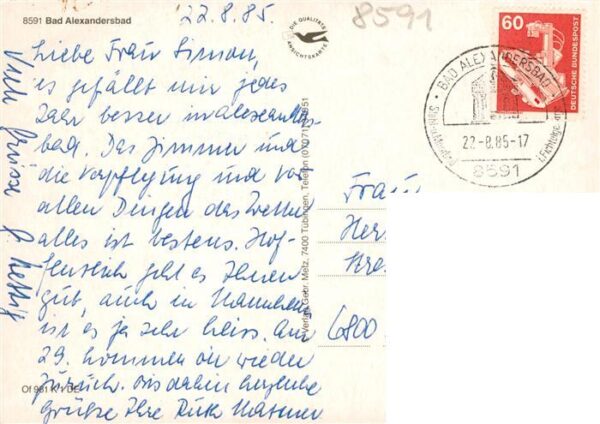 8591 Bad Alexandersbad
22.8.85.
8591
DIE QUALITÄTS
ANSICHTSKARTE
60
DEUTSCHE BUNDESPOST
BAD ALEXANDERSBAD
22.-8.85-17
8591
Liebe Frau Simon,
es gefällt mir jedes
Jahr besser in Alexanders-
bad. Das Zimmer und
die Verpflegung und vor
allen Dingen das Wetter
alles ist bestens. Hof-
fentlich geht es Ihnen
gut, auch in Mannheim
ist es ja sehr heiss. Am
29. kommen wir wieder
zurück. Bis dahin herzliche
Grüße Ihre Ruth
Viele Grüsse
Verlag Gebr. Metz, 7400 Tübingen, Telefon
Frau
Her
Stre
6800